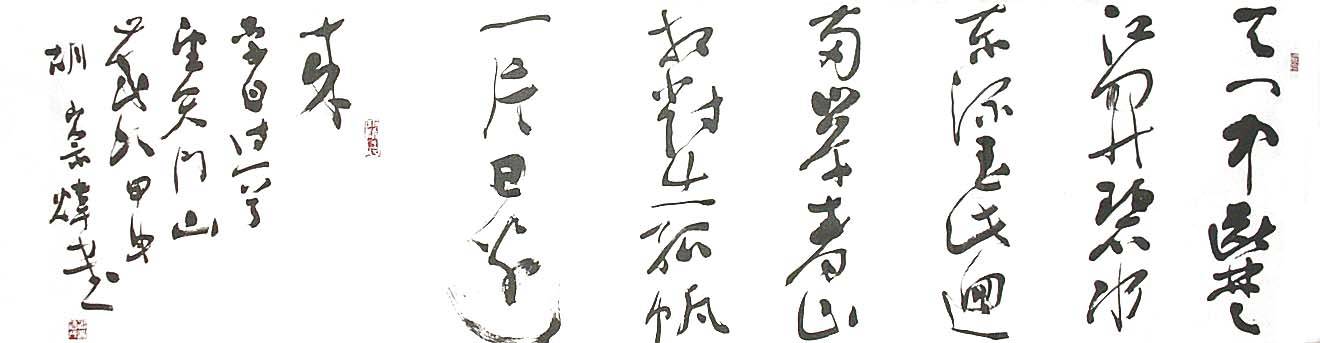 天门中断楚
江開碧水
东流至此迴
两岸青山
相對出孤帆
一片日邊
来
李白诗一首
望天门山
甲申
胡崇煒书